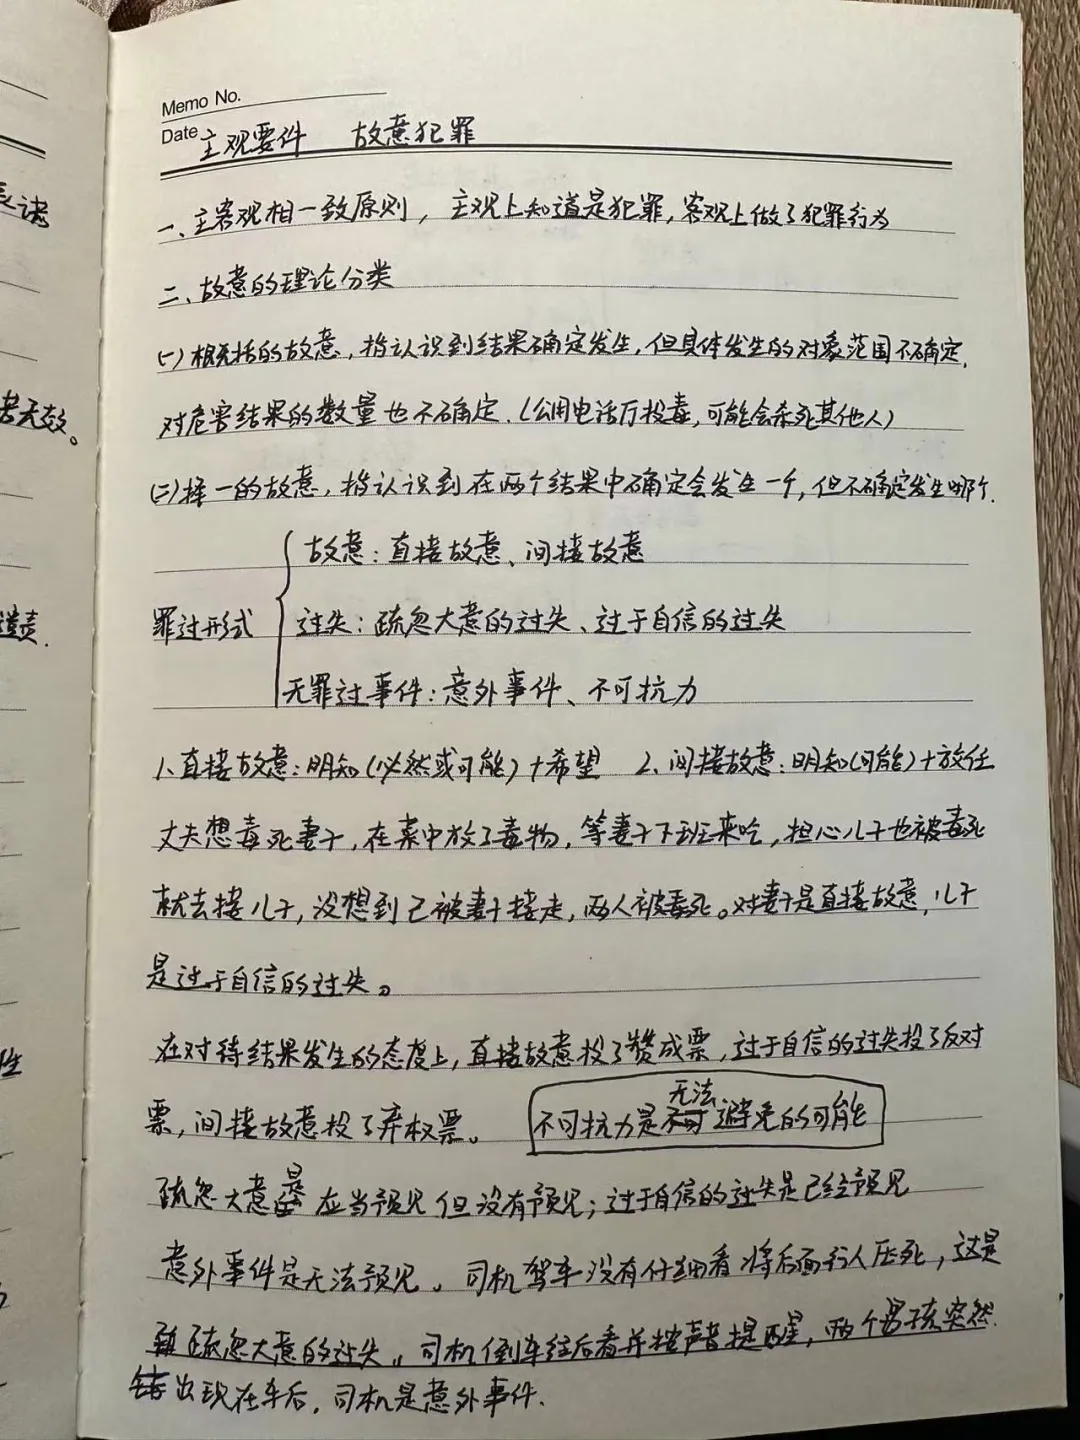 Memo No.
Date 主观要件 故意犯罪
一、主客观相一致原则，主观上知道是犯罪，客观上做了犯罪行为
二、故意的理论分类
(一)概括的故意，指认识到结果确定发生，但具体发生的对象范围不确定，
对危害结果的数量也不确定.(公用电话厅投毒，可能会杀死其他人)
(二)择一的故意，指认识到在两个结果中确定会发生一个，但不确定发生哪个.
故意：直接故意、间接故意
罪过形式 过失：疏忽大意的过失、过于自信的过失
无罪过事件：意外事件、不可抗力
1.直接故意：明知(必然或可能)+希望 2.间接故意：明知(可能)+放任
丈夫想毒死妻子，在菜中放了毒物，等妻子下班来吃，担心儿子也被毒死
就去接儿子，没想到已被妻子接走，两人被毒死。对妻子是直接故意，儿子
是过于自信的过失。
在对待结果发生的态度上，直接故意投了赞成票，过于自信的过失投了反对
票，间接故意投了弃权票。 不可抗力是无法避免的可能
疏忽大意是应当预见但没有预见；过于自信的过失是已经预见
意外事件是无法预见。司机驾车没有仔细看将后面行人压死，这是
疏忽大意的过失。司机倒车往后看并按声音提醒，两个男孩突然
出现在车后，司机是意外事件.
长诸
者无效。
遣责.
性